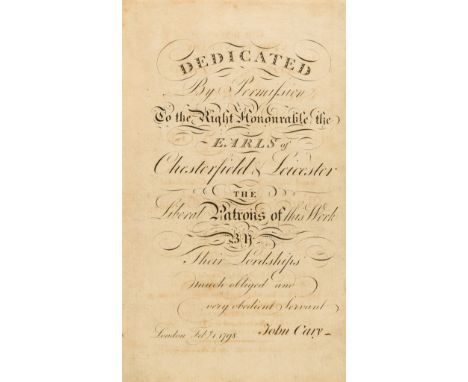 DEDICATED
By Permiſsion
To the Right Honourable the
EARLS of
Chesterfield & Leicester
THE
Liberal Patrons of this Work
BY
Their Lordships
much obliged and
very obedient Servant
London Feb.y 1 1798 John Cary